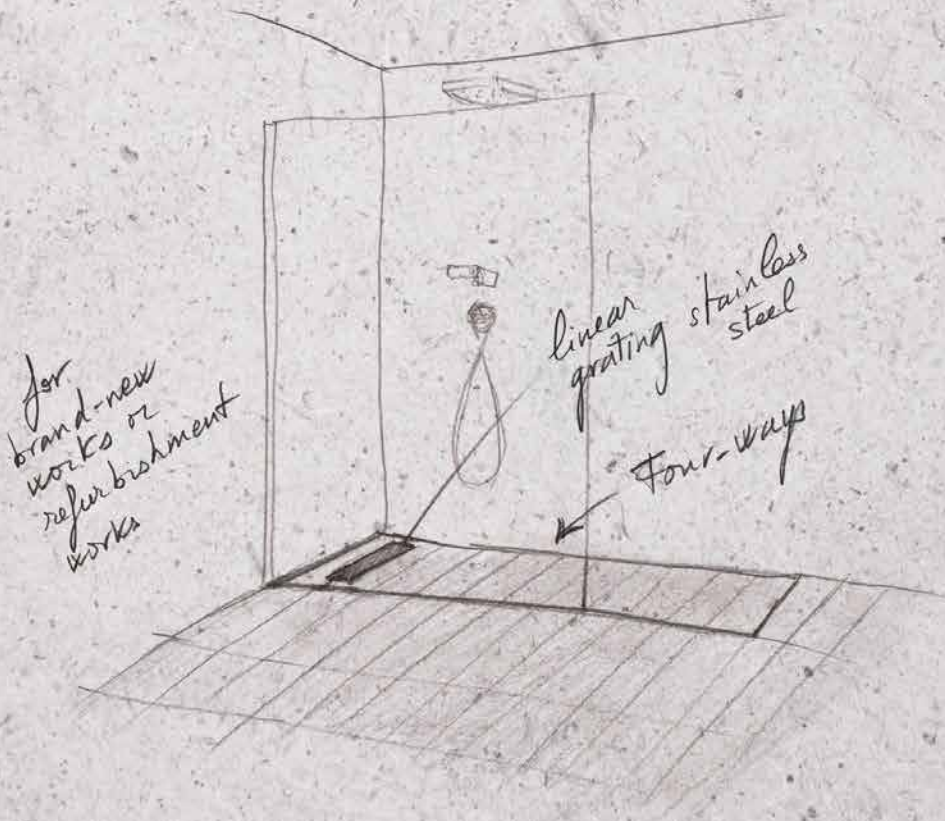 for
brand-new
works or
refurbishment
works
linear
grating stainless
steel
Four-ways